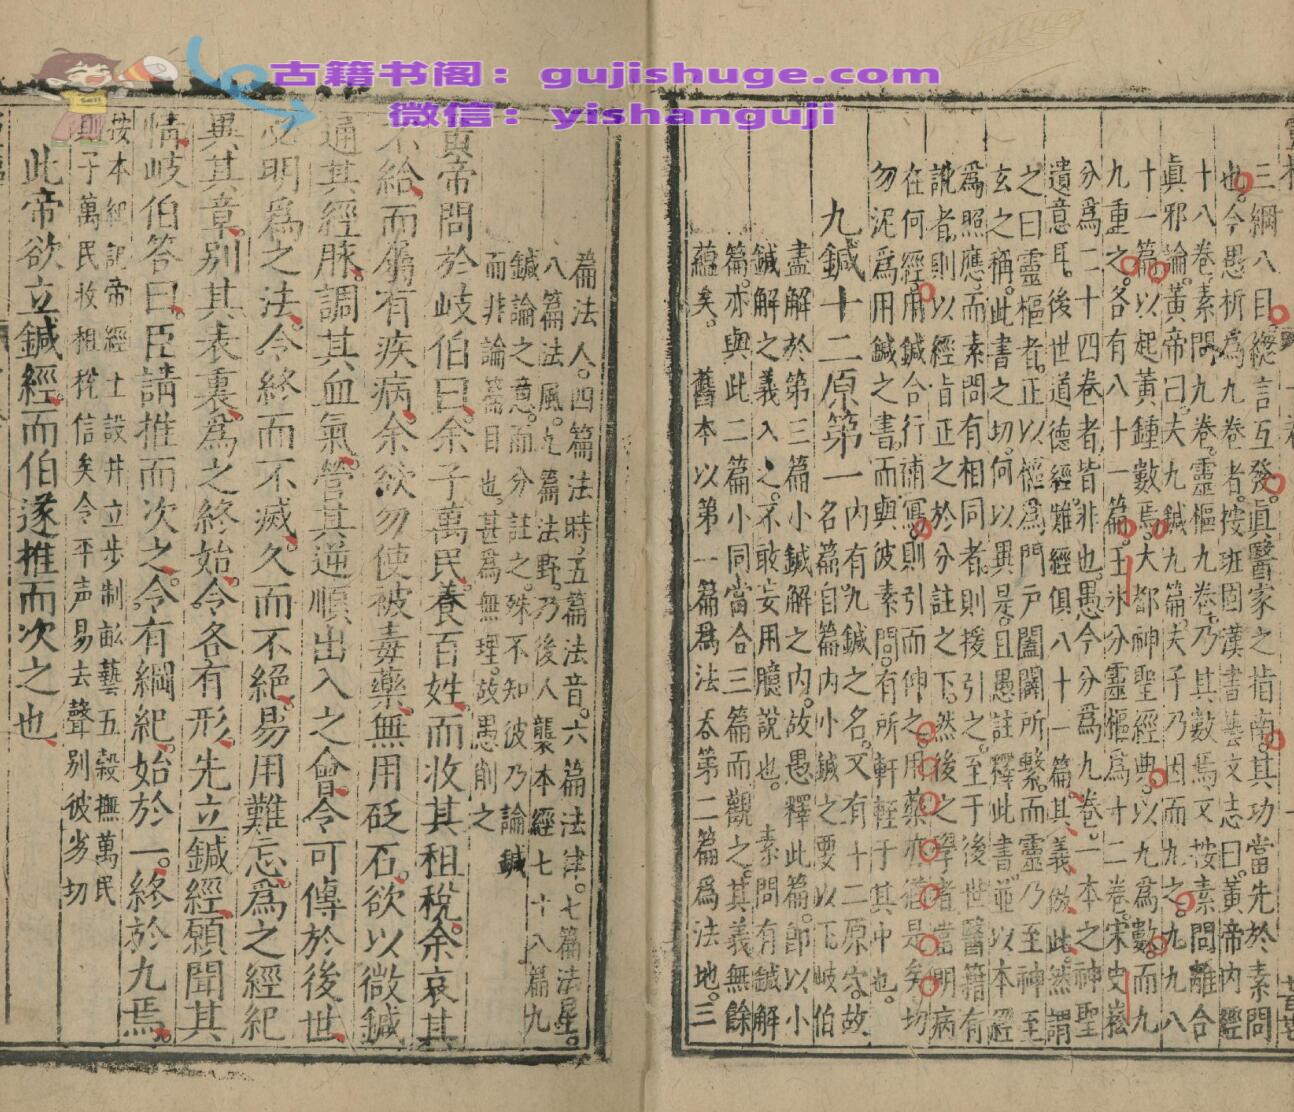 古籍书阁：gujishuge.com
微信：yishanguji
三綱八目總言互發眞醫家之指南其功當先於素問
也今愚析爲九卷者按班固漢書藝文志曰黃帝內經
十八卷素問九卷靈樞九卷乃其數焉又按素問離合
眞邪論黃帝曰夫九鍼九篇夫子乃因而九之九九八
十一篇以起黃鍾數焉大都神聖經典以九爲數而九
九重之各有八十一篇王氷分靈樞爲十二卷宋史崧
分爲二十四卷者皆非也愚今分爲九卷一本之神聖
遺意耳後世道德經難經俱八十一篇其義倣此然謂
之曰靈樞者正以樞爲門戶闔闢所繫而靈乃至神至
玄之稱此書之切何以異是且愚註釋此書並以本經
爲照應而素問有相同者則援引之至于後世醫籍有
訛者則以經旨正之於分註之下然後之學者當明病
在何經用鍼合行補瀉則引而伸之用藥亦猶是矣切
勿泥爲用鍼之書而與彼素問有所軒輊于其中也
九鍼十二原第一內有九鍼之名又有十二原穴故
名篇自篇內小鍼之要以下岐伯
盡解於第三篇小鍼解之內故愚釋此篇卽以小
鍼解之義入之不敢妄用臆說也　素問有鍼解
篇亦與此二篇小同當合三篇而觀之其義無餘
蘊矣　舊本以第一篇爲法天第二篇爲法地三
篇法人四篇法時五篇法音六篇法律七篇法星
八篇法風九篇法野乃後人襲本經七十八篇九
鍼論之意而分註之殊不知彼乃論鍼
而非論篇目也甚爲無理故愚削之
黃帝問於岐伯曰余子萬民養百姓而收其租稅余哀其
不給而屬有疾病余欲勿使被毒藥無用砭石欲以微鍼
通其經脉調其血氣營其逆順出入之會令可傳於後世
必明爲之法令終而不滅久而不絕易用難忘爲之經紀
異其章別其表裏爲之終始令各有形先立鍼經願聞其
情岐伯答曰臣請推而次之令有綱紀始於一終於九焉
按本紀記帝經土設井立步制畝藝五榖撫萬民
則子萬民收租稅信矣令平声易去聲別彼劣切
此帝欲立鍼經而伯遂推而次之也